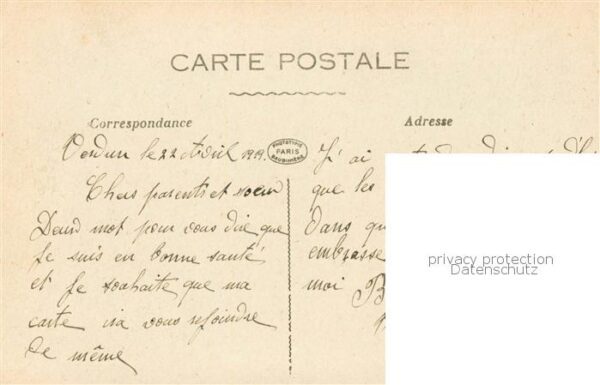 CARTE POSTALE
Correspondance
Adresse
PHOTOTYPIE
PARIS
Verdun le 22 Avril 1919.
Chers parents et soeur
Deux mot pour vous dire que
Je suis en bonne santé
et Je souhaite que ma
carte ira vous rejoindre
de même
J'ai
que les
dans
embrasse
moi
privacy protection
Datenschutz